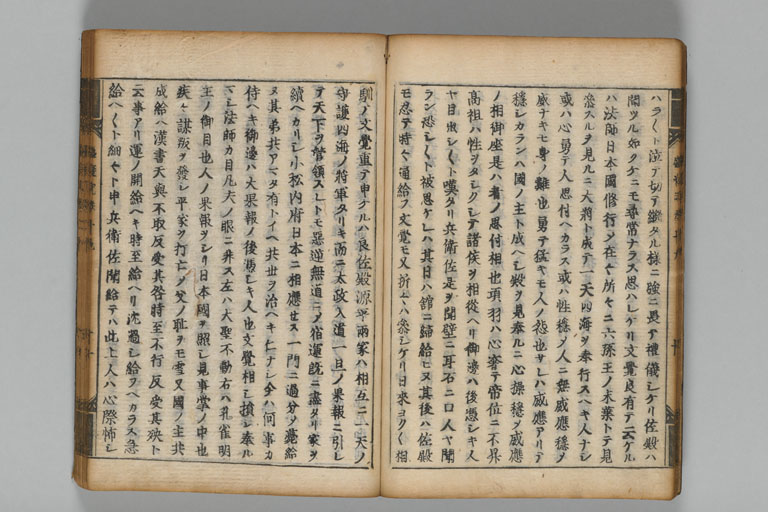 ハラ〱ト泣テ切テ繼タル樣ニ強ニ畏テ禮儀シケリ佐殿ハ
聞ツル如クケニモ尋常ナラス思ハレケリ文覺良有テ云ケル
ハ法師日本國修行シ在々所々ニ六孫王ノ末葉トテ見
參スルヲ見ルニ大將ト成テ一天四海ヲ奉行スヘキ人ナシ
或ハ心勇テ人思付ヘカラス或ハ性穩メ人ニ無威應穩メ
威ナキモ身ノ難也勇テ猛キモ人ノ怨也サレハ威應アリテ
穩シカランハ國ノ主ト成ヘシ殿ヲ見奉ルニ心操穩ヲ威應
ノ相御座是ハ者ノ思付相也項羽ハ心奢テ帝位ニ不昇
高祖ハ性ヲタシクシテ諸侯ヲ相從ヘリ御邊ハ後憑シキ人
ヤ目出シ〱ト嘆タリ兵衛佐是ヲ聞壁ニ耳石ニ口人ヤ聞
ラン恐シ〱ト被思ケレハ其日ハ舘ニ歸給ヒヌ其後ハ佐殿
モ忍テ時々通給フ文覺モ又折々ハ參シケリ日來ヨク〱相
馴ノ文覺重テ申ケルハ良佐殿源平兩家ハ相互ニ一天ノ
守護四海ノ將軍タリキ而ニ太政入道一旦ノ果報ニ引レ
テ天下ヲ管領スレトモ惡逆無道ニメ宿運既ニ盡タリ家ヲ
續ヘカリシ小松内府日本ニ相應セス一門ニ過分メ薨給
ヌ其弟共アマタ有トイヘ共世ヲ治ヘキ仁ナシ全ハ何事カ
侍ヘキ御邊ハ大果報ノ後憑シキ人也文覺相シ損シ奉ル
マシ法師カ目凡夫ノ眼ニ非ス左ハ大聖不動右ハ孔雀明
王ノ御目也人ノ果報ヲシリ日本國ヲ照シ見事掌ノ中也
疾々謀叛ヲ發シ平家ヲ打亡メ父ノ耻ヲモ雪又國ノ主共
成給ヘ漢書天與不取反受其咎時至不行反受其殃ト
云事アリ運ノ開給ヘキ時至給ヘリ沈過シ給フヘカラス急
給ヘ〱ト細々ト申兵衛佐聞給テハ此上人ハ心際怖シ